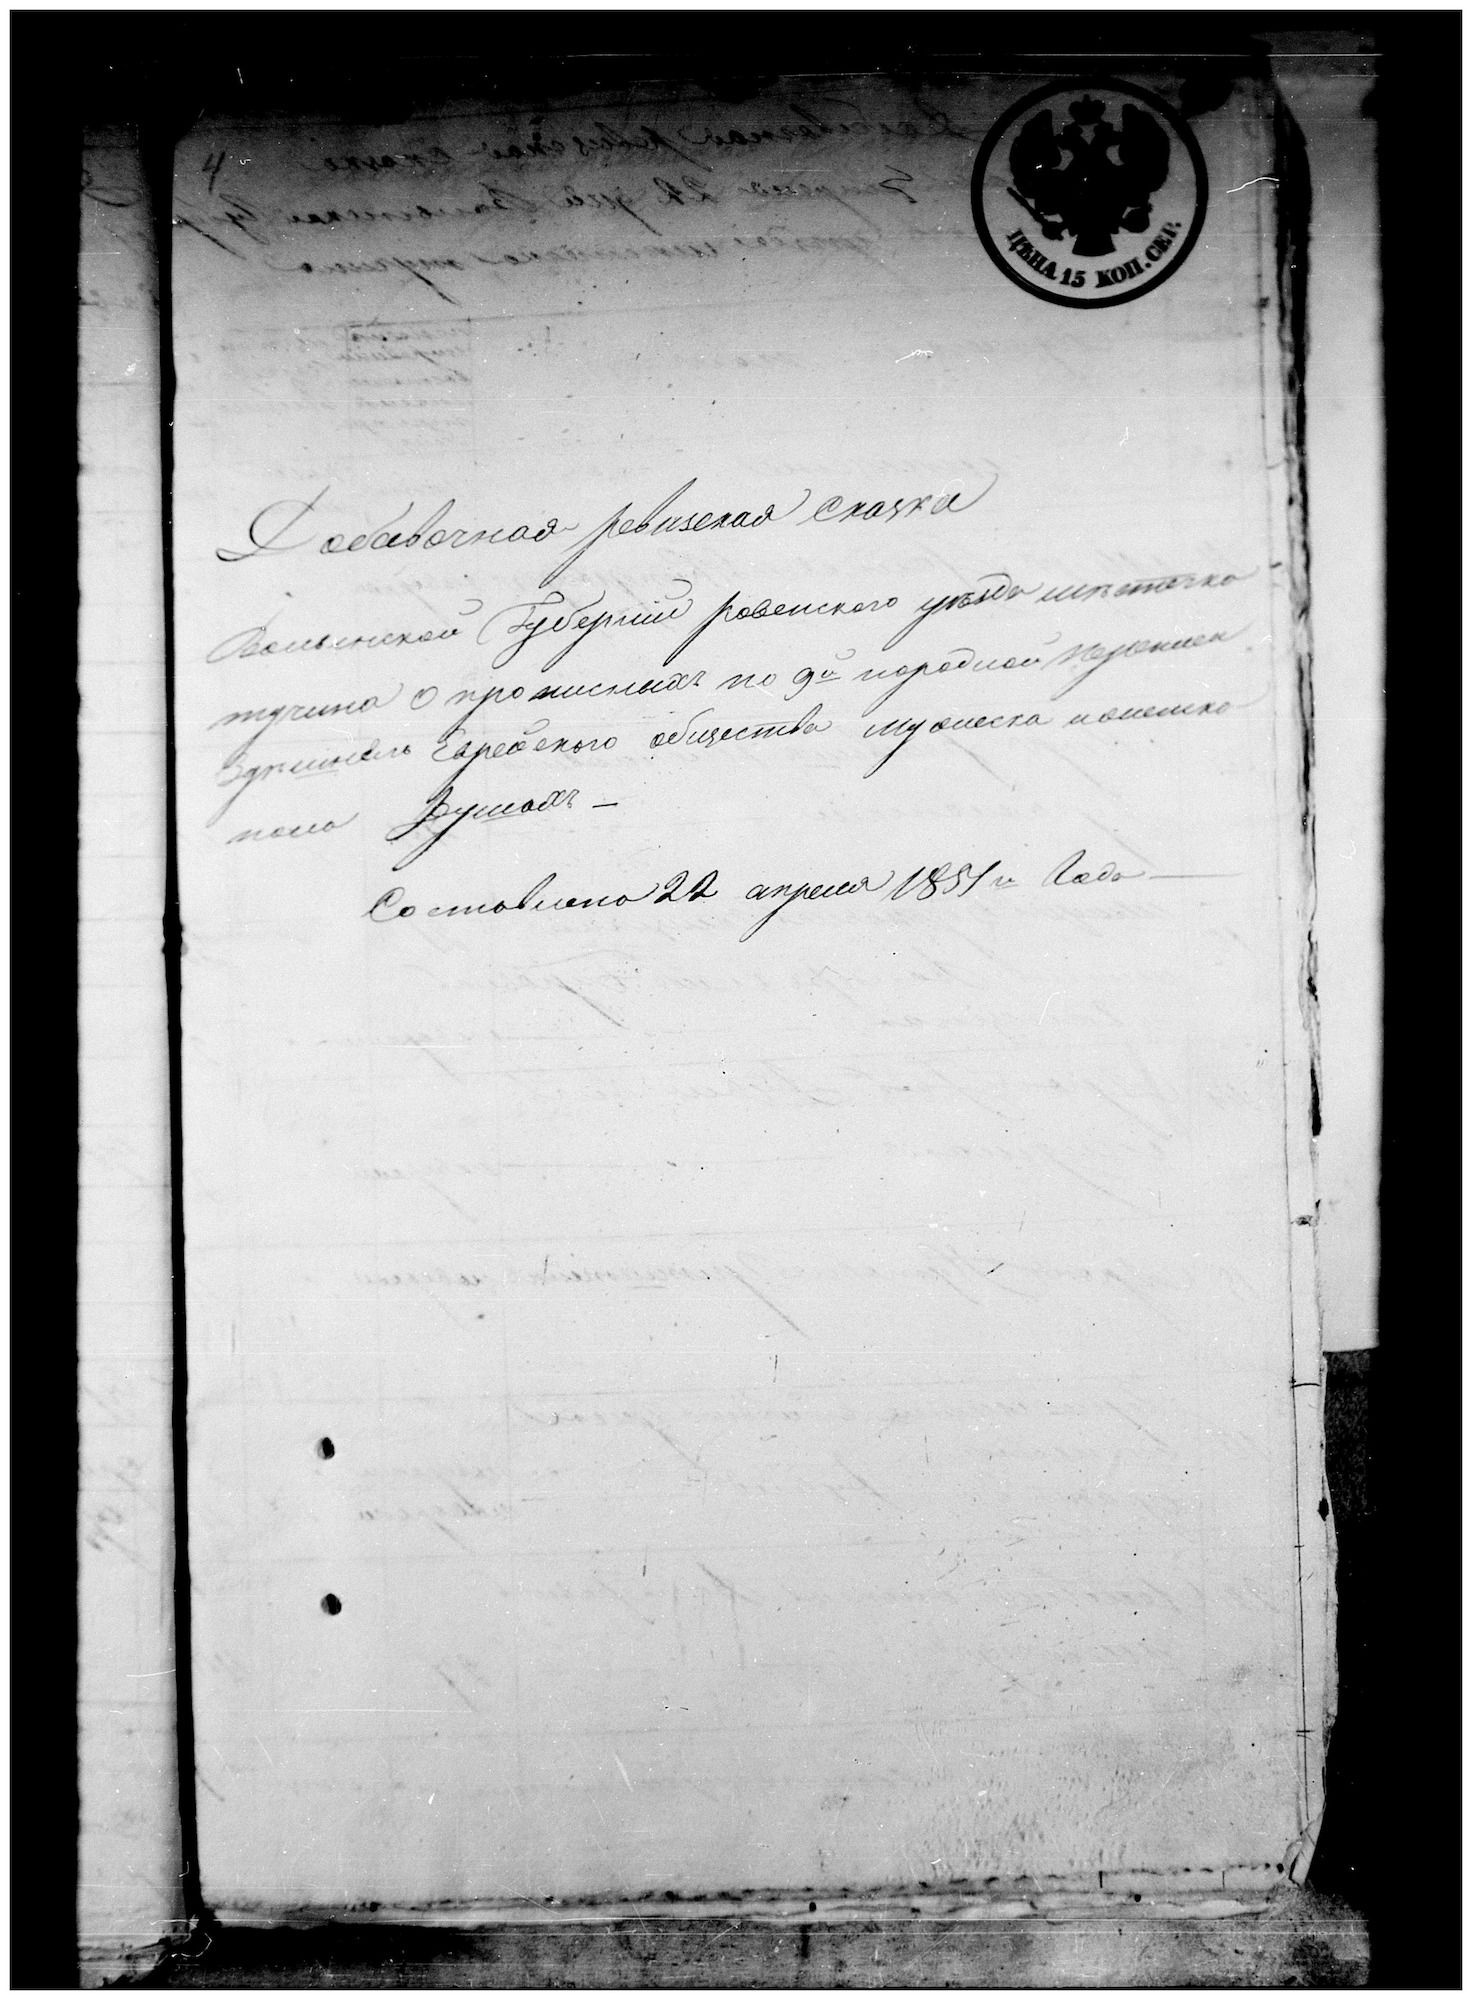 4
ЦѢНА 15 КОП. СЕР.
Добавочная ревизская сказка
Волынской Губерніи ровенского уѣзда мѣстечка
тучина о прописныхъ по 9й народной переписи
Еврейского общества мужеска и женска
пола душахъ —
Составлена 22 апреля 1851го Года —